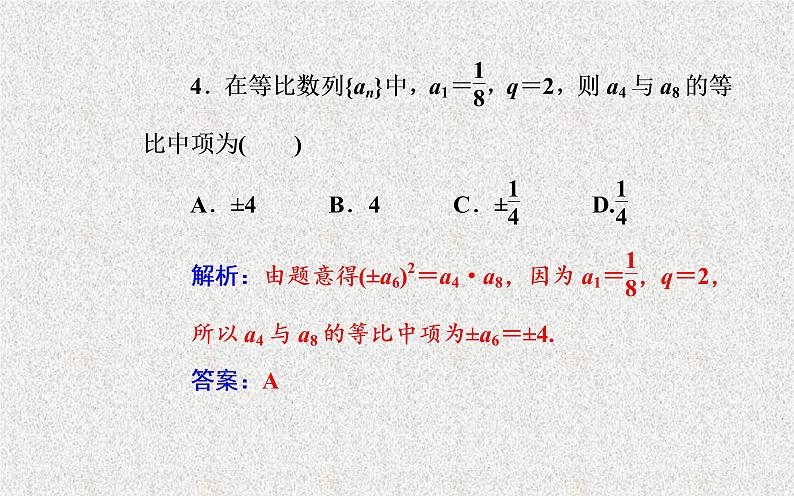 4．在等比数列{aₙ}中，a₁＝1/8，q＝2，则 a₄与 a₈的等
比中项为(　　)
A．±4　　B．4　　C．±1/4　　D.1/4
解析：由题意得(±a₆)²＝a₄·a₈，因为 a₁＝1/8，q＝2，
所以 a₄与 a₈的等比中项为±a₆＝±4.
答案：A